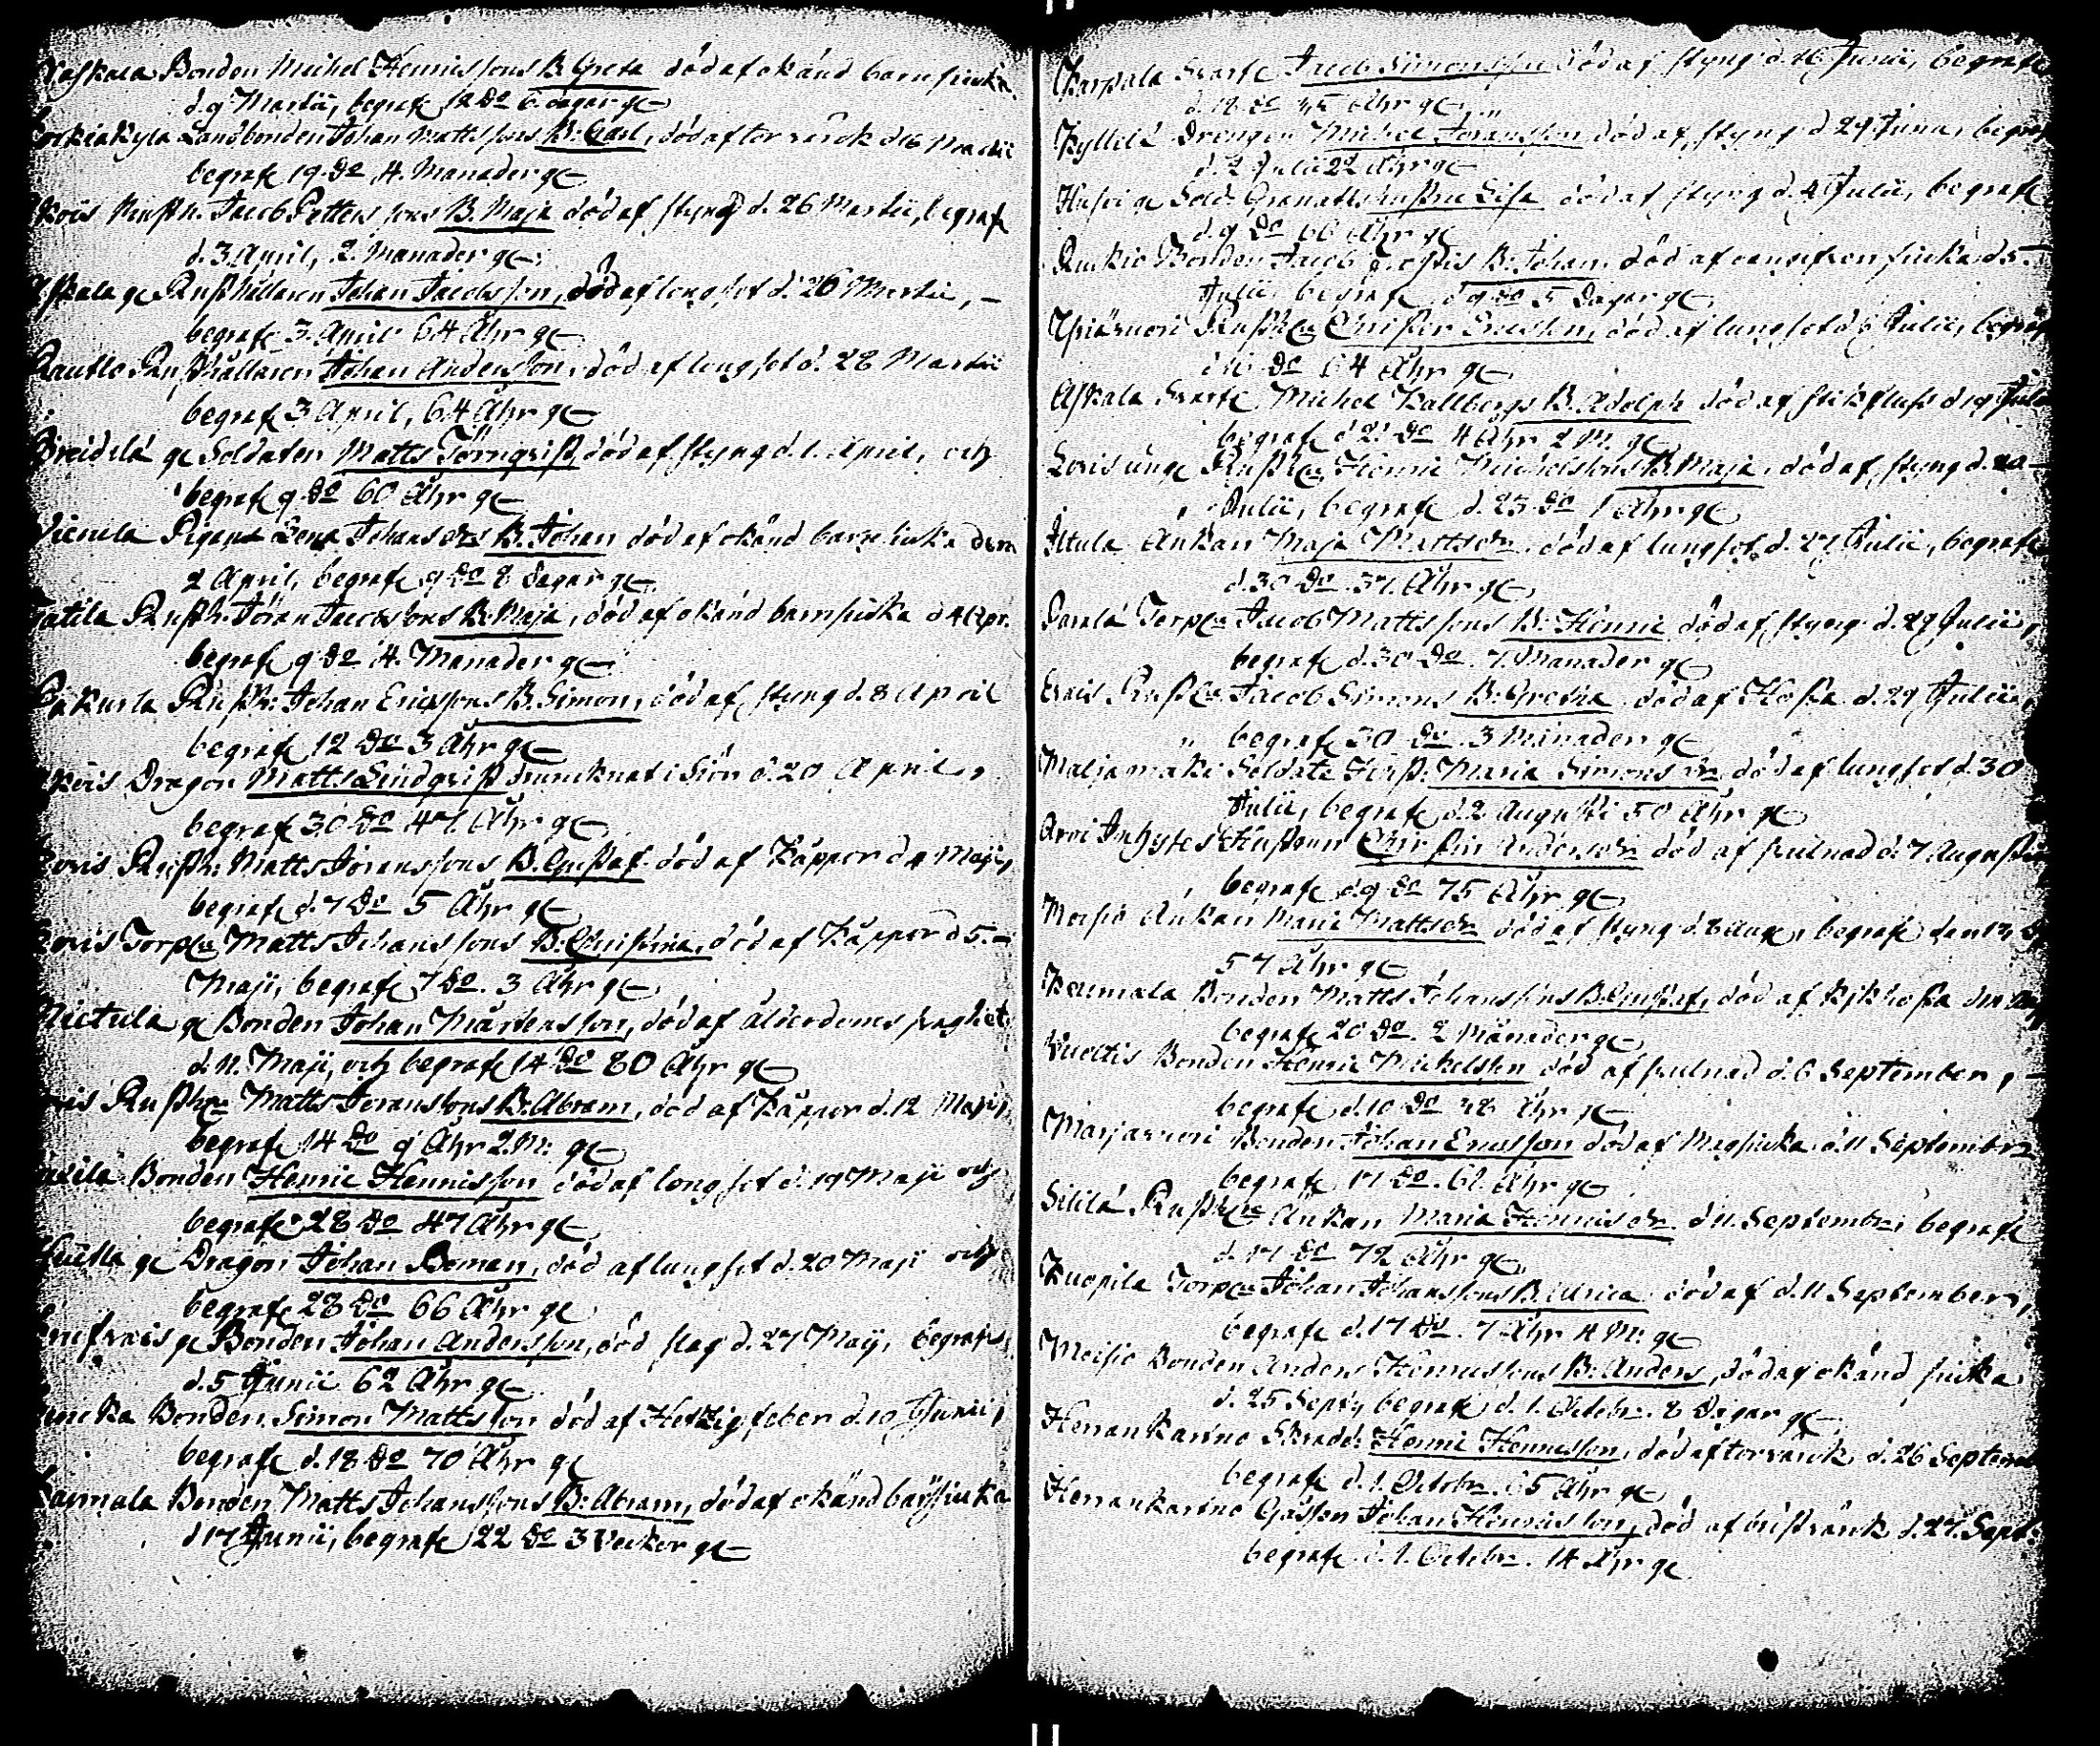 Bonden Michel Henrissons B. Greta död af okänd barn siuka
d. 9 Martii, begrafn 12 do 6 dagar g
Landbonden Johan Mattssons B. Carl, död af torrvärk d 16 Martii
begrafn 19 do 4. Månader g
Rusth. Jacob Petterssons B. Maja död af styng d. 26 Martii, begrafn
d. 3 April, 2. Månader g
ge Rusthållaren Johan Jacobsson, död af lungsot d. 26 Martii, –
begrafn 3 April 64 Åhr g
Rusthållaren Johan Andersson, död af lungsot d. 28 Martii
begrafn 3 April, 64 Åhr g
ge Soldaten Matts Törnqvist, död af styng d. 1. April, och
begrafn 9 do 60 Åhr g
Pigans Lena Johansdr B. Johan död af okänd barnsiuka den
2 April, begrafn 9 do 8 Dagar g
Rusth. Jöran Jacobssons B. Maja, död af okänd barnsiuka d 4 Apr.
begrafn 9 do 4. Månader g
Rusth: Johan Ericssons B. Simon, död af styng d. 8 April
begrafn 12 do 3 Åhr g
Dragon Matts Lindqvist drunknat i Siön d. 20 April,
begrafn 30 do 47 Åhr g
Rusth: Matts Joranssons B. Gustaf död af Kåppor d 4 Maji,
begrafn d. 7 do 5 Åhr g
Torp Matts Johanssons B. Christina, död af Kåppor d 5. –
Maji, begrafn 7 do. 3 Åhr g
ge Bonden Johan Mårtensson, död af ålderdoms swaghet
d. 11. Maji, och begrafn 14 do 80 Åhr g
Rusth Matts Joranssons B. Abram, död af Kåppor d. 12 Maji,
begrafn 14 do 9 Åhr 2 M: g
Bonden Henric Henricsson död af lungsot d. 19 Maji och
begrafn 28 do 47 Åhr g
ge Dragon Johan Boman, död af lungsot d. 20 Maji och
begrafn 28 do 66 Åhr g
ge Bonden Johan Andersson, död slag d. 27 Maji, begrafn
d. 5 Junii 62 Åhr g
Bonden Simon Mattsson död af Hetzig feber d. 10 Junii,
begrafn d. 18 do 70 Åhr g
Bonden Matts Johanssons B: Abram, död af okänd barnsiuka
d 17 Junii, begrafn 22 do 3 Veckor g
Karpala Jacob Simonsson död af styng d. 16 Junii, begrafn
d. 18 do 45 Åhr g
Kyllilä Drengen Michel Joransson död af styng d 29 Junii, begrafn
d. 2 Julii 22 Åhr g
ge Sold. Granatts hustru Lisa död af styng d. 4 Julii, begrafn
d. 9 do 60 Åhr g
Bonden Jacob B. Johan död af d 5.
Julii begrafn d 9 do 5 Dagar g
Rusth Christer Ericsson, död af lungsot d 6 Julii, begrafn
d 10 do 64 Åhr g
Askala Michel Kallbergs B. Adolph död af d 19 Julii
begrafn d 21 do 4 Åhr 2 M: g
Rusth Henric Michelssons B. Maja, död af styng d. 20 –
Julii, begrafn d. 23 do 1 Åhr g
Iltula Änkan Maja Mattsdr, död af lungsot d. 27 Julii, begrafn
d. 30 do 37 Åhr g
Torp Jacob Mattssons B: Henric död af styng d. 29 Julii,
begrafn d. 30 do. 7. Månader g
Rusth Jacob Simons B. Gretha död af Hosta d. 29 Julii,
begrafn 30 do. 3 Månader g
Maljamäki Soldate Hust. Maria Simonsdr, död af lungsot d. 30
Julii, begrafn d. 2 Augusti 50 Åhr g
Arvi Inhyses Hustrun Christin Andersdr död af swlnad d. 7 Augusti
begrafn d. 9 do 75 Åhr g
Moisio Änkan Maria Mattsdr död af styng d. 8 Aug, begrafn den 13
57 Åhr g
Bonden Matts Johanssons B. Gustaf, död af Kikhosta
begrafn 20 do. 2 Månader g
Bonden Henric Michelsson död af swlnad d. 6 September, –
begrafn d. 10 do 48 Åhr g
Marjavuori Bonden Johan Ericsson död af Magsiuka d. 11 Septembr
begrafn 17 do. 62 Åhr g
Sililä Rusth Änkan Maria Henricsdr d. 11. Septembr begrafn
d. 17 do 72 Åhr g
Kuopila Torp Johan Johanssons B. Ulrica död af d. 11 September,
begrafn d. 17 do. 7 Åhr 4 M: g
Moisio Bonden Anders Henricssons B: Anders, död af okänd siuka
d. 25 Sept, begrafn d. 1. Octobr. 8 Dagar g
Herrankartno Skradd: Henric Henricsson, död af torrvärk, d. 26 Septem
begrafn d. 1. Octobr. 65 Åhr g
Herrankartno Gossen Johan Henricsson, död af bröstvärk d. 27. Sept.
begrafn d. 1. Octobr. 14 Åhr g